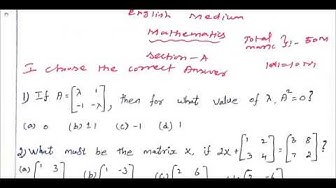 English Medium
Mathematics
Total marks }- 50M
Section-A
I choose the correct Answer 10x1=10M
1) If A=[λ 1 -1 -λ], then for what value of λ, A²=0?
(a) 0 (b) ±1 (c) -1 (d) 1
2) What must be the matrix X, if 2X+[1 2 3 4]=[3 8 7 2]?
(a) [1 3 (b) [1 -3 (c) [2 6 (d) [2